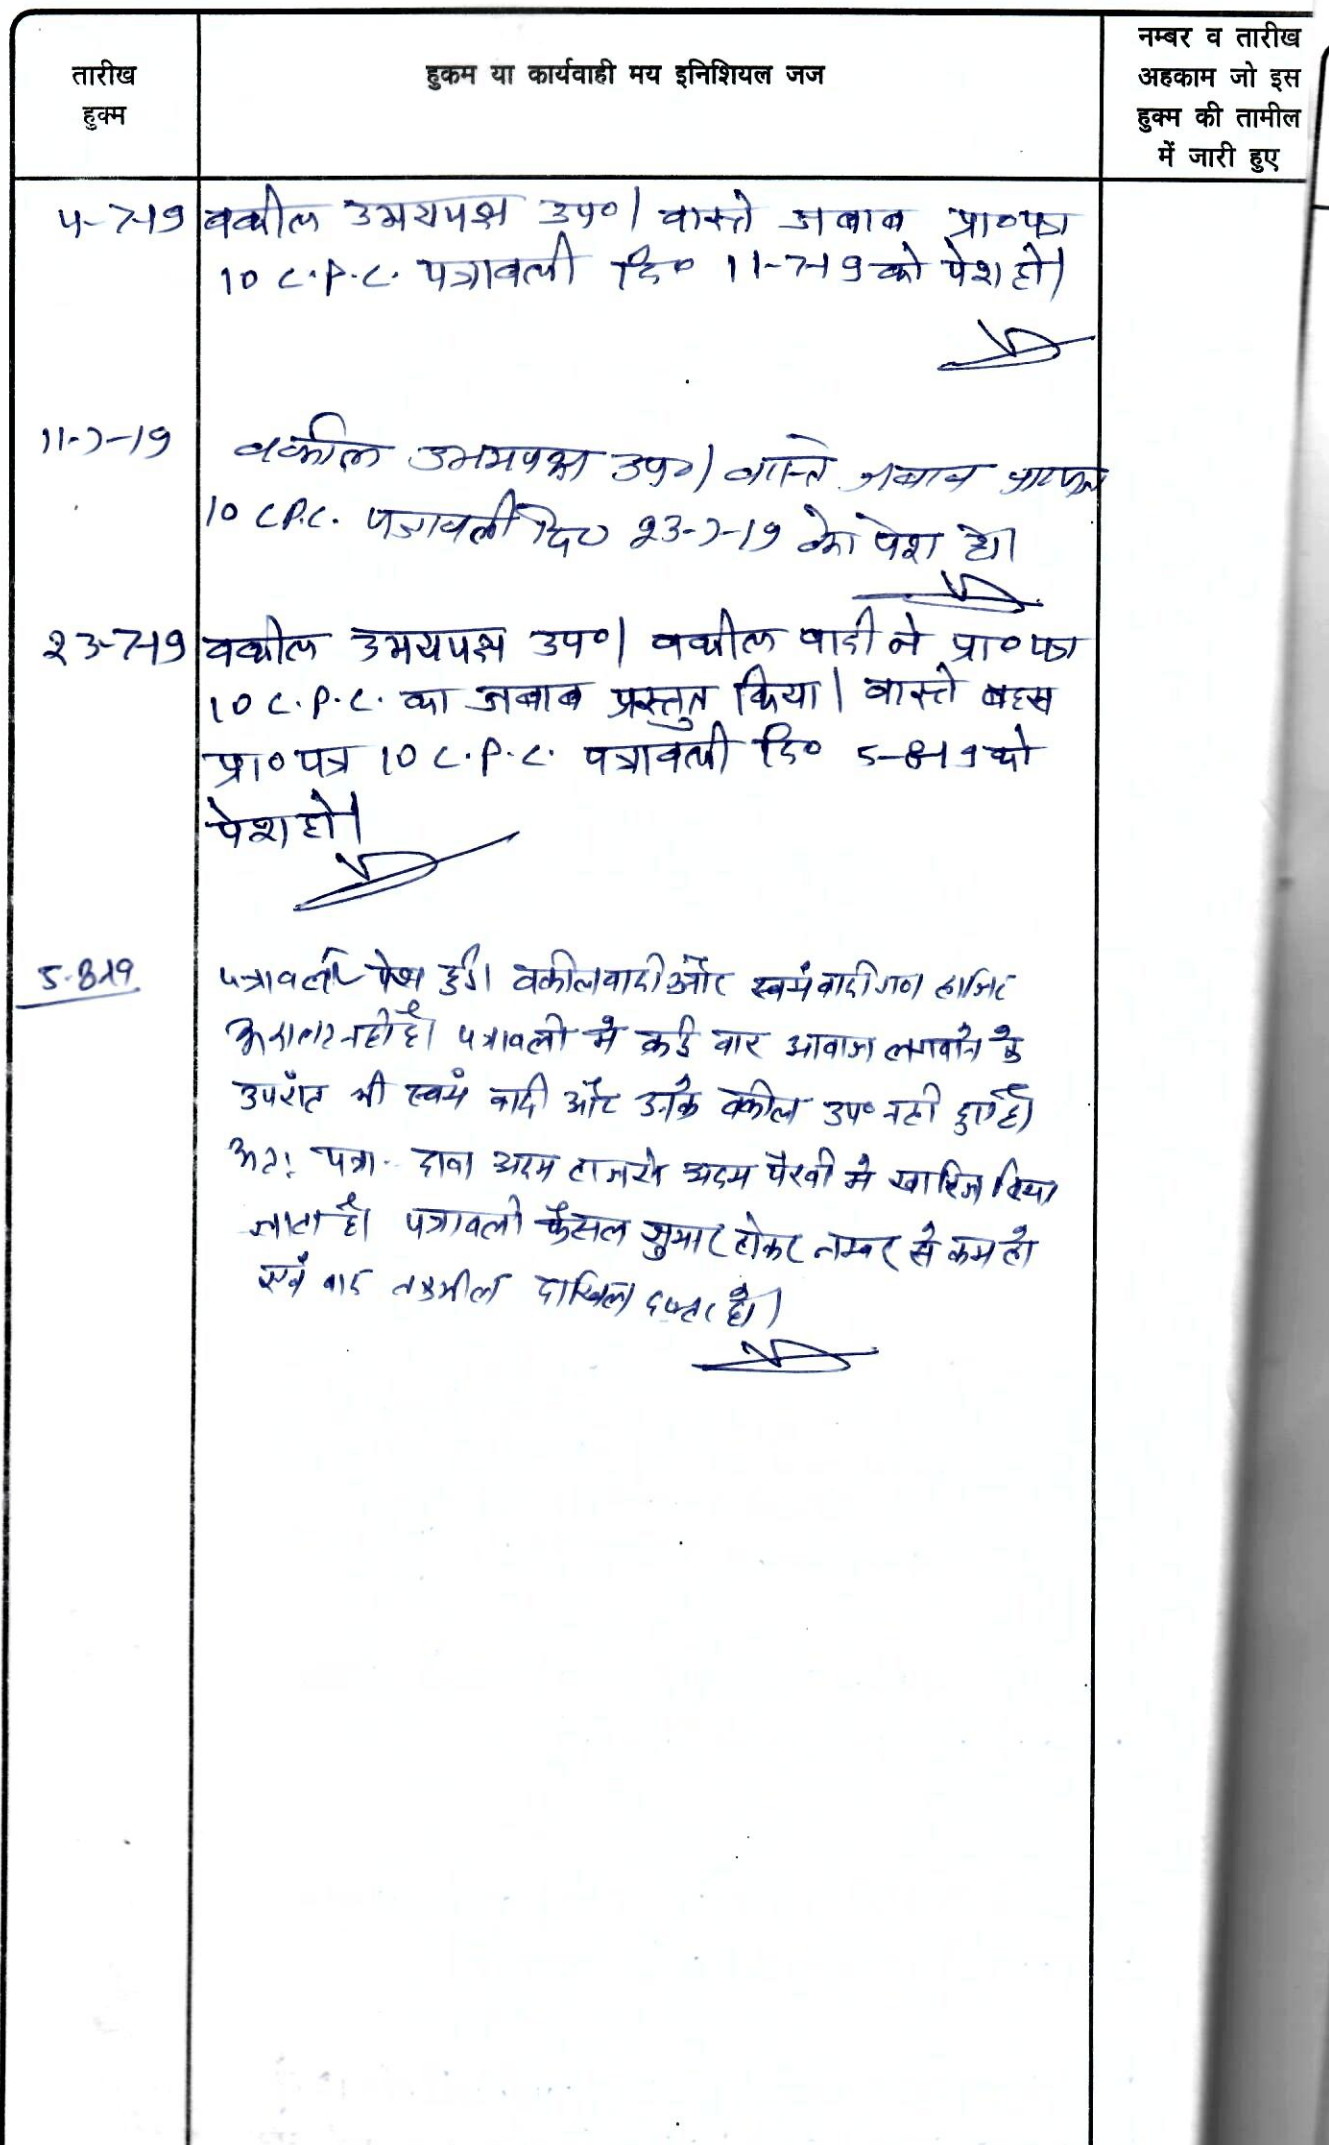 तारीख
हुक्म
हुकम या कार्यवाही मय इनिशियल जज
नम्बर व तारीख
अहकाम जो इस
हुक्म की तामील
में जारी हुए
4-7-19 वकील उभयपक्ष उप०। वास्ते जबाब प्रा०पत्र
10 C.P.C. पत्रावली दि० 11-7-19 को पेश हो।
11-7-19 वकील उभयपक्ष उप०। वास्ते जबाब प्रा०पत्र
10 C.P.C. पत्रावली दि० 23-7-19 को पेश हो।
23-7-19 वकील उभयपक्ष उप०। वकील वादी ने प्रा०पत्र
10 C.P.C. का जबाब प्रस्तुत किया। वास्ते बहस
प्रा०पत्र 10 C.P.C. पत्रावली दि० 5-8-19 को
पेश हो।
5-8-19 पत्रावली पेश हुई। वकील वादी और स्वयं वादीगण हाजिर
अदालत नही है। पत्रावली मे कई बार आवाज लगवाने के
उपरांत भी स्वयं वादी और उनके वकील उप० नही हुए है।
अतः पत्रा.. दावा अदम हाजरी अदम पैरवी मे खारिज किया
जाता है। पत्रावली फैसल सुमार होकर नम्बर से कम हो
एवं बाद तकमील दाखिल दफ्तर हो।